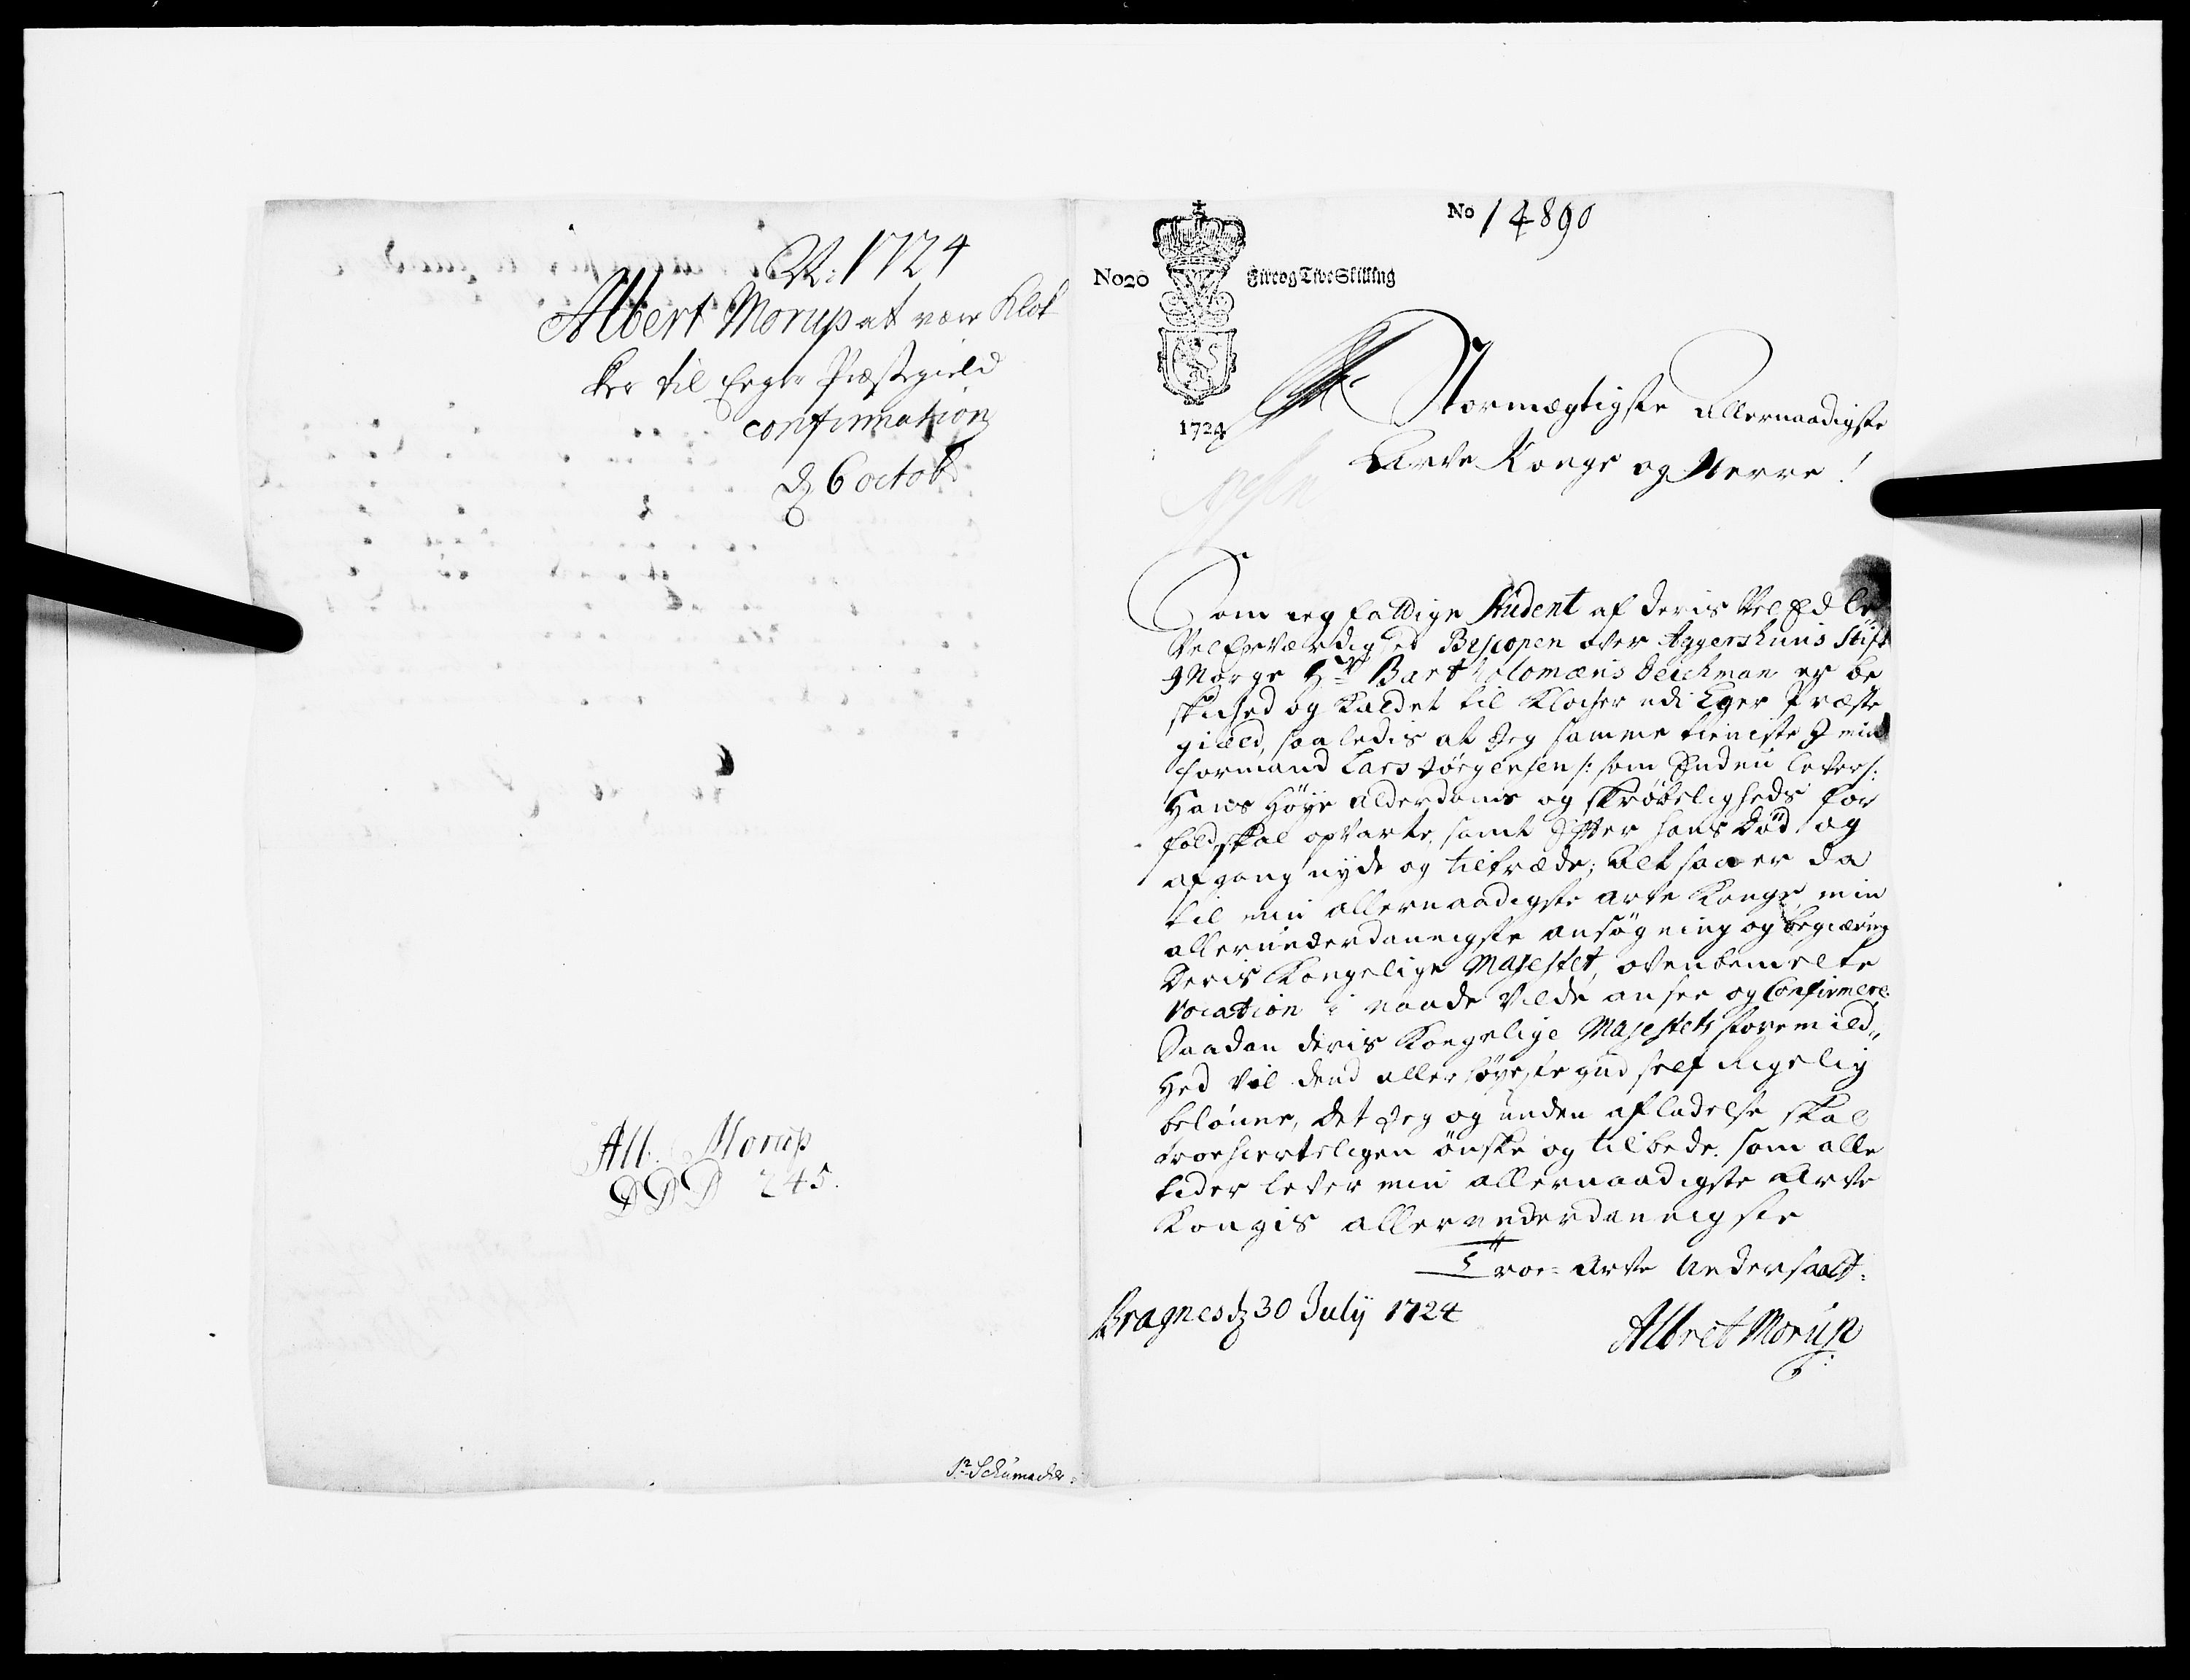 1724
Albert Morup at vær Klok
ker til Eger Præstegield
confirmation
d 6 octobr
Alb. Morup
245.
Sr Schumacher
No 14890
No20
Fire og Tive Skilling
1724
Stormægtigste Allernaadigste
Arve Konge og Herre!
Som ieg fattige Student af deris Vel Edle
Vel Ærværdighed Biscopen over Aggershuus Stift
J Norge Hr Bartholomæus Deichman er be
skiched og Kaldet til Klocher udi Eger Præste
gield, saaledis at Jeg samme tieniste J min
formand Lars Jörgensen /: som Endnu lever :/
Hans Höye alderdoms og skröbeligheds for
fald, skal opvarte, samt Efter hans Död og
afgang nyde og tiltræde; Alt saa er da
til min allernaadigste arve Konge, min
allerunderdannigste ansögning og begiæring
Deris Kongelige Majestet, ovenbemelte
Vocation i naade Vilde ansee og Confirmere
Saadan deris Kongelige Majestets store mild„
Hed Vil dend allerhöyeste gud self Rigelig
belönne, Det Jeg og uden afladelse skal
troehierteligen önske og tilbede. som alle
tider lever min allernaadigste Arve
Kongis allerunderdannigste
Troe= Arve Undersaat
Bragnes d 30 July 1724
Albret Morup